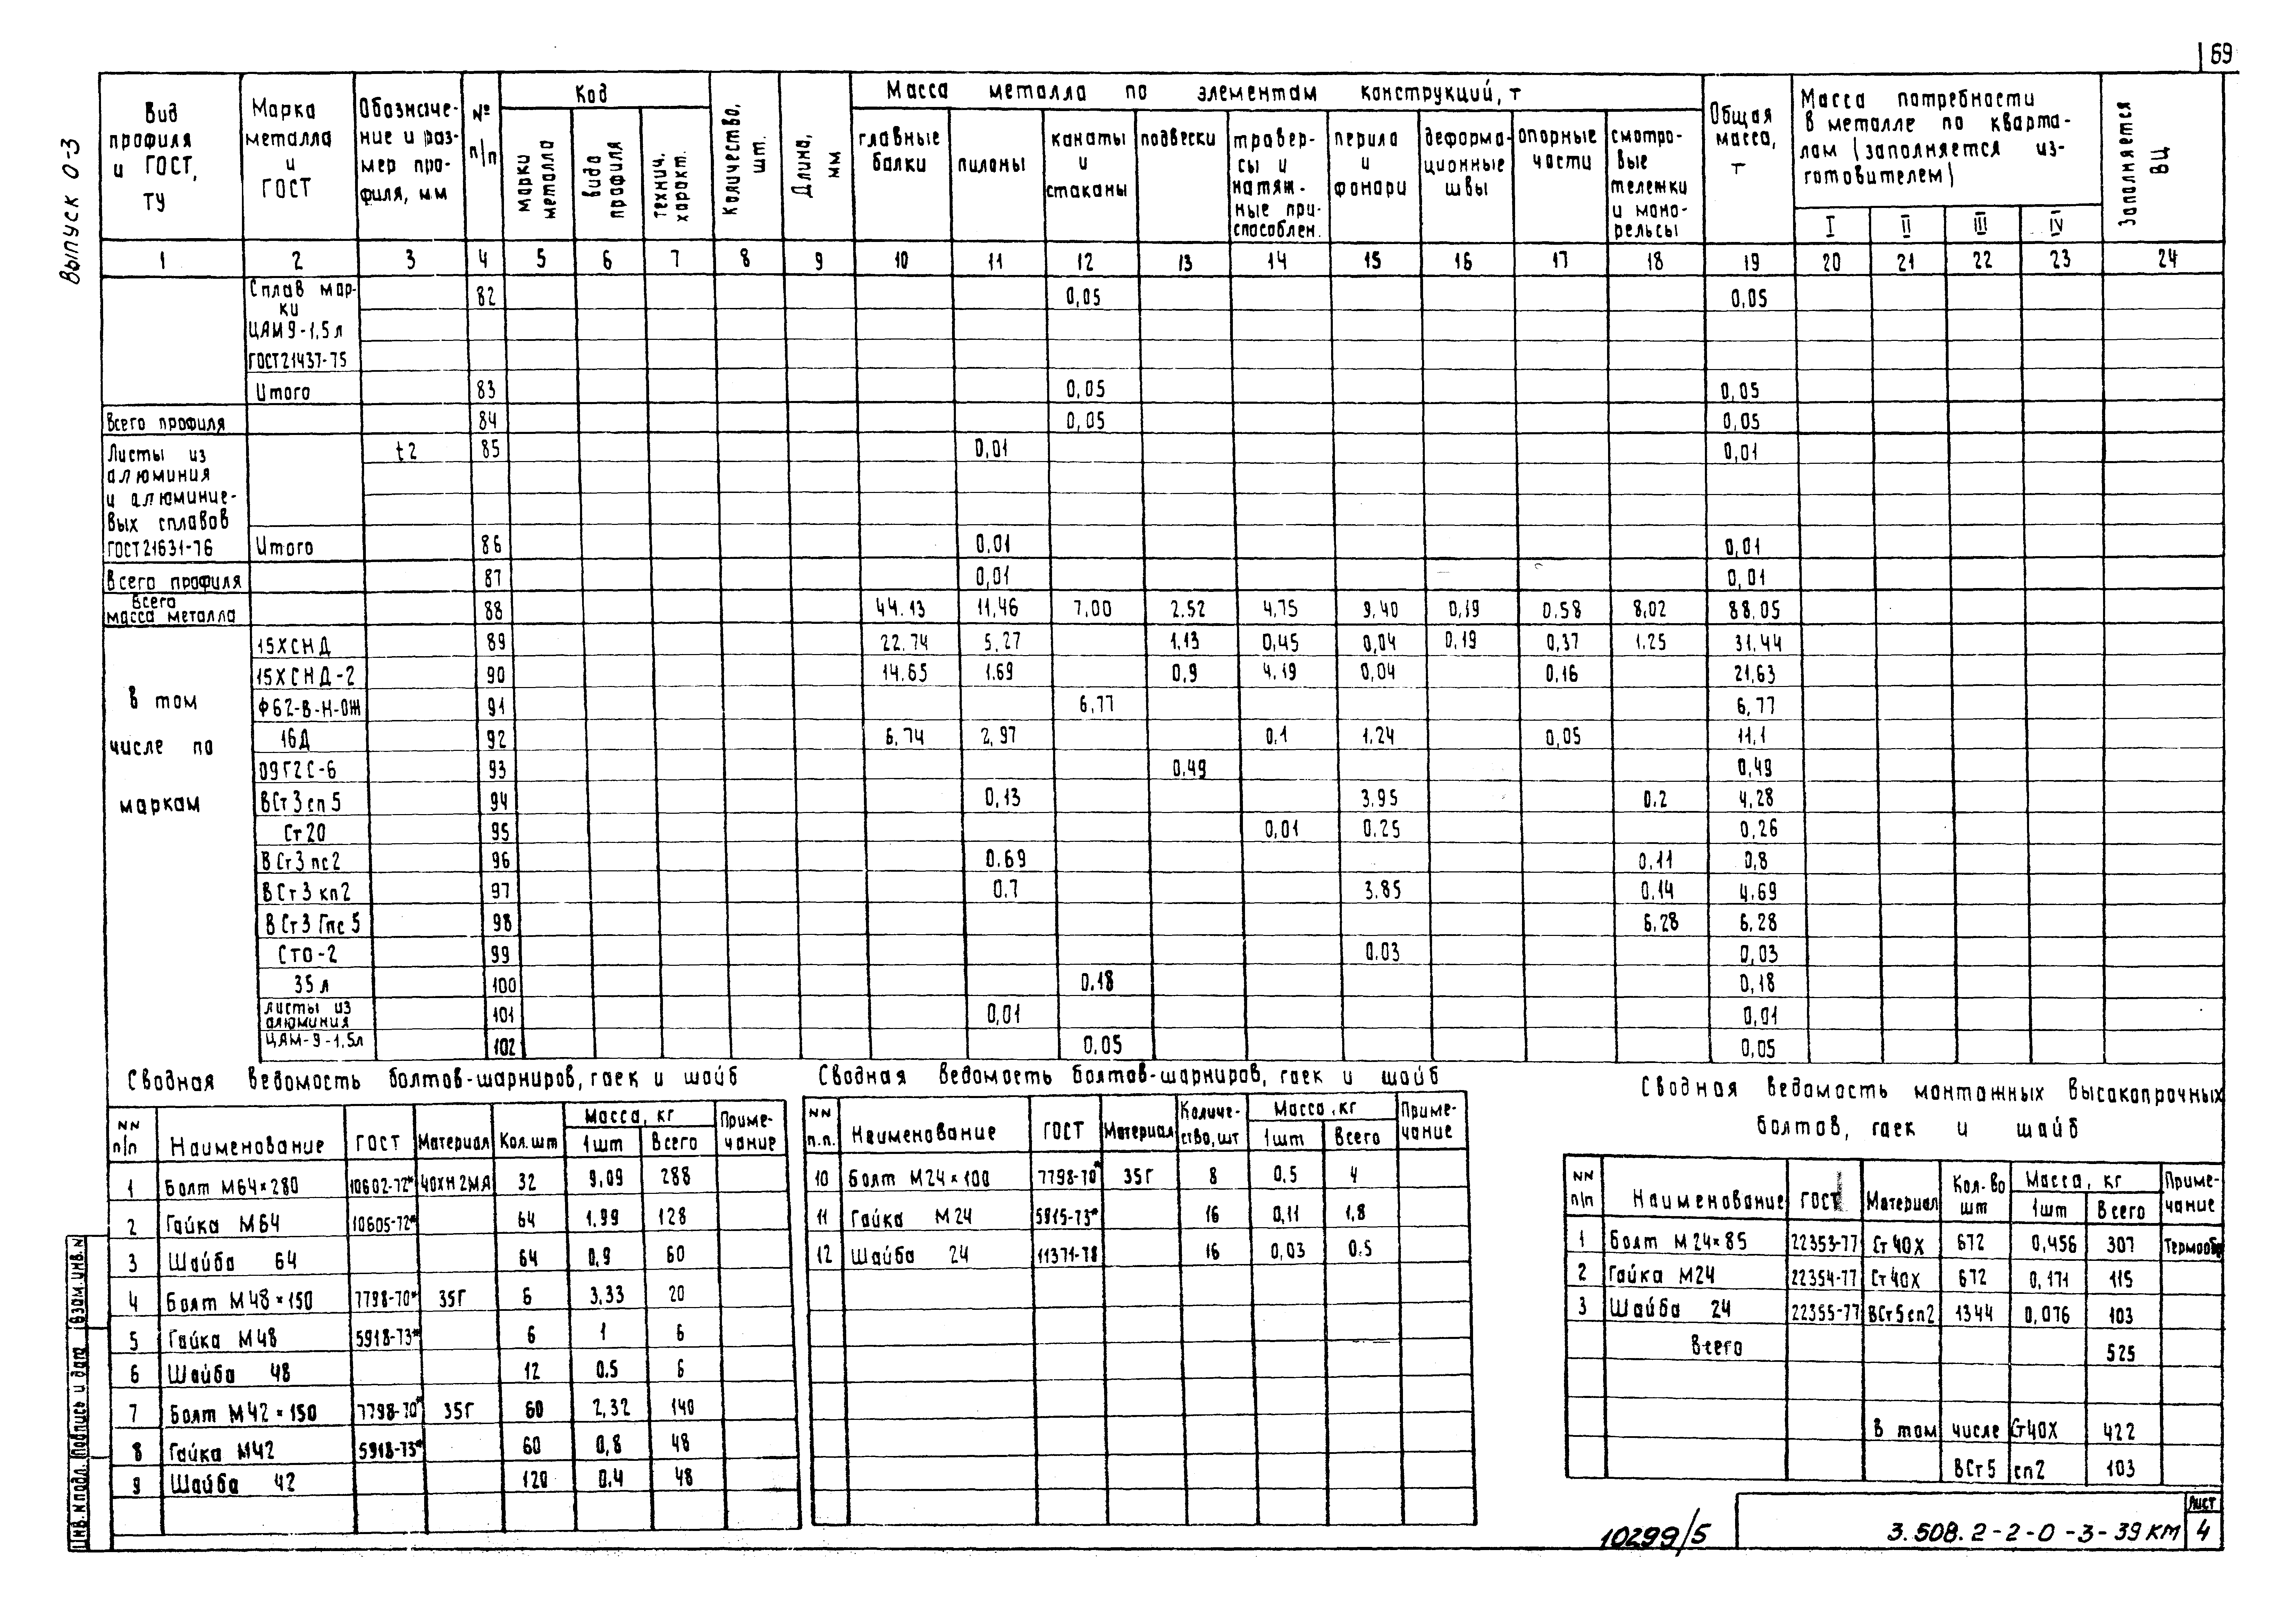 69
Выпуск 0-3
Вид профиля и ГОСТ, ТУ | Марка металла и ГОСТ | Обозначение и размер профиля, мм | № п/п | Код | Количество, шт. | Длина, мм | Масса металла по элементам конструкций, т | Общая масса, т | Масса потребности в металле по кварталам (заполняется изготовителем) | Заполняется ВЦ
марки металла | вида профиля | технич. характ. | главные балки | пилоны | канаты и стаканы | подвески | траверсы и натяжные приспособлен. | перила и фонари | деформационные швы | опорные части | смотровые тележки и монорельсы | I | II | III | IV
1 2 3 4 5 6 7 8 9 10 11 12 13 14 15 16 17 18 19 20 21 22 23 24
Сплав марки ЦАМ 9-1,5л ГОСТ 21437-75 82 0,05 0,05
Итого 83 0,05 0,05
Всего профиля 84 0,05 0,05
Листы из алюминия и алюминиевых сплавов ГОСТ 21631-76 t2 85 0,01 0,01
Итого 86 0,01 0,01
Всего профиля 87 0,01 0,01
Всего масса металла 88 44.13 11,46 7,00 2.52 4,75 9,40 0,19 0,58 8,02 88,05
В том числе по маркам
15ХСНД 89 22.74 5,27 1.13 0,45 0,04 0,19 0,37 1.25 31.44
15ХСНД-2 90 14.65 1.69 0,9 4,19 0,04 0,16 21,63
Ф62-В-Н-ОЖ 91 6,77 6,77
16Д 92 6,74 2,97 0.1 1,24 0,05 11,1
09Г2С-6 93 0,49 0,49
ВСт3сп5 94 0,13 3,95 0.2 4,28
Ст20 95 0,01 0.25 0,26
ВСт3пс2 96 0.69 0,11 0,8
ВСт3кп2 97 0.7 3.85 0,14 4,69
ВСт3Гпс5 98 6,28 6,28
СТО-2 99 0.03 0,03
35л 100 0,18 0,18
Листы из алюминия 101 0,01 0,01
ЦАМ-9-1,5л 102 0,05 0,05
Сводная ведомость болтов-шарниров, гаек и шайб
NN п/п | Наименование | ГОСТ | Материал | Кол. шт | Масса, кг | Примечание
1шт | Всего
1 Болт М64×280 10602-72* 40ХН2МА 32 9,09 288
2 Гайка М64 10605-72* 64 1.99 128
3 Шайба 64 64 0,9 60
4 Болт М48×150 7798-70* 35Г 6 3,33 20
5 Гайка М48 5918-73* 6 1 6
6 Шайба 48 12 0.5 6
7 Болт М42×150 7798-70* 35Г 60 2,32 140
8 Гайка М42 5918-73* 60 0,8 48
9 Шайба 42 120 0.4 48
Сводная ведомость болтов-шарниров, гаек и шайб
NN п.п. | Наименование | ГОСТ | Материал | Количество, шт | Масса, кг | Примечание
1шт | Всего
10 Болт М24×100 7798-70* 35Г 8 0.5 4
11 Гайка М24 5915-73* 16 0,11 1,8
12 Шайба 24 11371-78 16 0,03 0.5
Сводная ведомость монтажных высокопрочных
болтов, гаек и шайб
NN п/п | Наименование | ГОСТ | Материал | Кол-во шт | Масса, кг | Примечание
1шт | Всего
1 Болт М24×85 22353-77 Ст40Х 672 0,456 307 Термообр
2 Гайка М24 22354-77 Ст40Х 672 0,171 115
3 Шайба 24 22355-77 ВСт5сп2 1344 0,076 103
Всего 525
в том числе Ст40Х 422
ВСт5 сп2 103
Инв. № подл. Подпись и дата Взам. инв. №
10299/5
3.508.2-2-0-3-39КМ
Лист
4